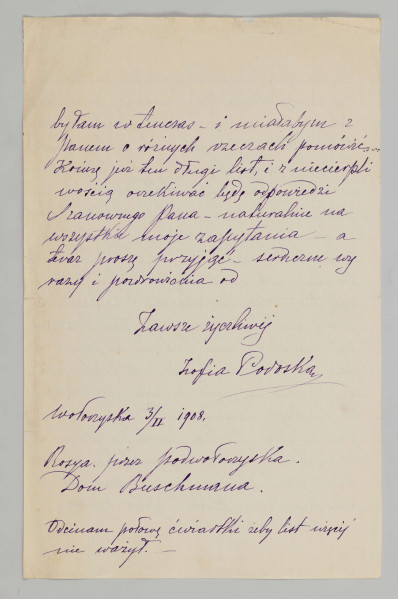 byłam wtenczas – i miałabym z
Panem o różnych rzeczach pomówić –
Kończę już ten długi list, i z niecierpli
wością oczekiwać będę odpowiedzi
Szanownego Pana – naturalnie na
wszystkie moje zapytania – a
teraz proszę przyjąć – serdeczne wy
razy i pozdrowienia od
Zawsze życzliwej
Zofia Podoska
Wołoczyska 3/II 1908.
Rosya. przez Podwołoczyska.
Dom Buschmana.
Odcinam połowę ćwiartki żeby list więcej
nie ważył. –